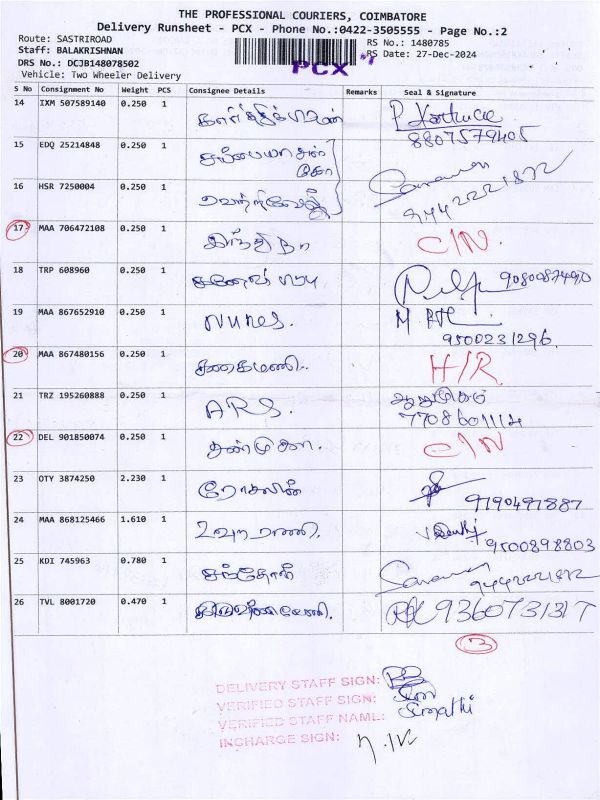 THE PROFESSIONAL COURIERS, COIMBATORE
Delivery Runsheet - PCX - Phone No.:0422-3505555 - Page No.:2
Route: SASTRIROAD
RS No.: 1480785
Staff: BALAKRISHNAN
RS Date: 27-Dec-2024
DRS No.: DCJB148078502
PCX
Vehicle: Two Wheeler Delivery
S No Consignment No Weight PCS Consignee Details Remarks Seal & Signature
14 IXM 507589140 0.250 1
8807579405
15 EDQ 25214848 0.250 1
16 HSR 7250004 0.250 1 வெற்றிவேல்
9442221872
17 MAA 706472108 0.250 1 இந்திரா C/N.
18 TRP 608960 0.250 1
19 MAA 867652910 0.250 1 Nunes.
9500231296
20 MAA 867480156 0.250 1 H/R
21 TRZ 195260888 0.250 1 ARS. ஆறுமுகம்
7708601114
22 DEL 901850074 0.250 1 சண்முகா. C/N
23 OTY 3874250 2.230 1 ரோசலின்
9190497887
24 MAA 868125466 1.610 1 உஷாராணி.
9500898803
25 KDI 745963 0.780 1 சந்தோஷ்
9442221872
26 TVL 8001720 0.470 1 9360731317
3
DELIVERY STAFF SIGN:
VERIFIED STAFF SIGN:
VERIFIED STAFF NAME: Sumathi
INCHARGE SIGN: